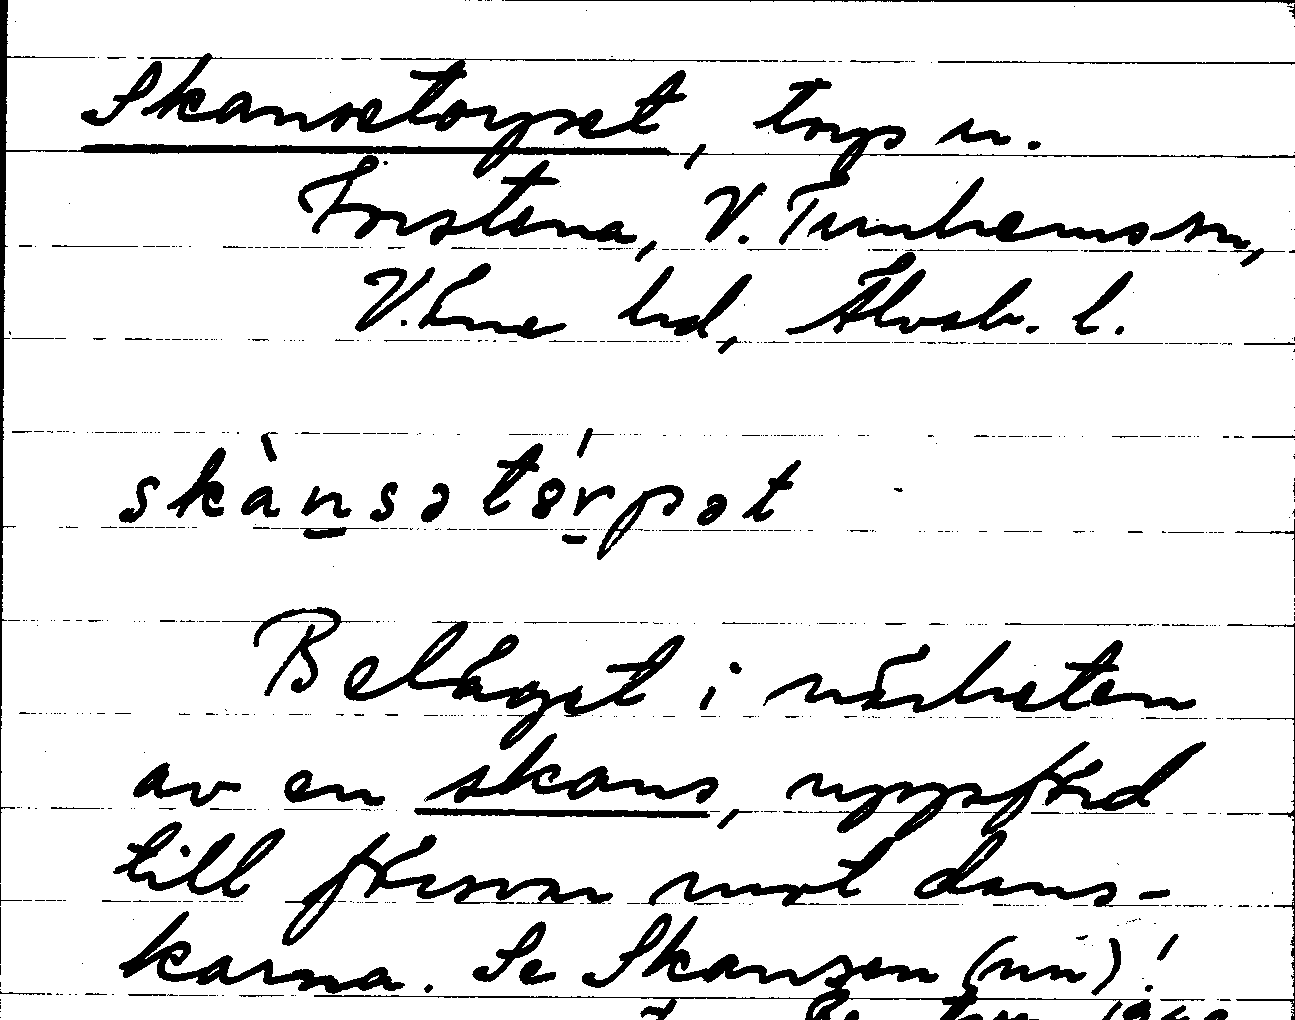 Skansetorpet, torp u.
Forstena, V. Tunhems sn,
V.ne hd, Älvsb. l.
skànsətórpət
Beläget i närheten
av en skans, uppförd
till försvar mot dans-
karna. Se Skansen (nin)!